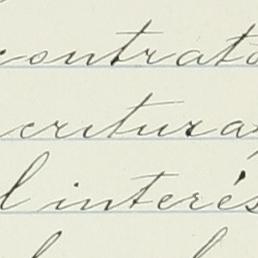 contrato
critura
l interés